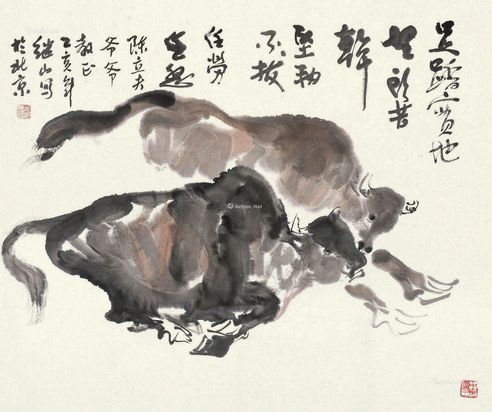 足踏實地
埋头苦
幹
堅韌
不拔
任勞
任怨
陈立夫
爷爷
教正
乙亥年
继山写
於北京
Artron.Net